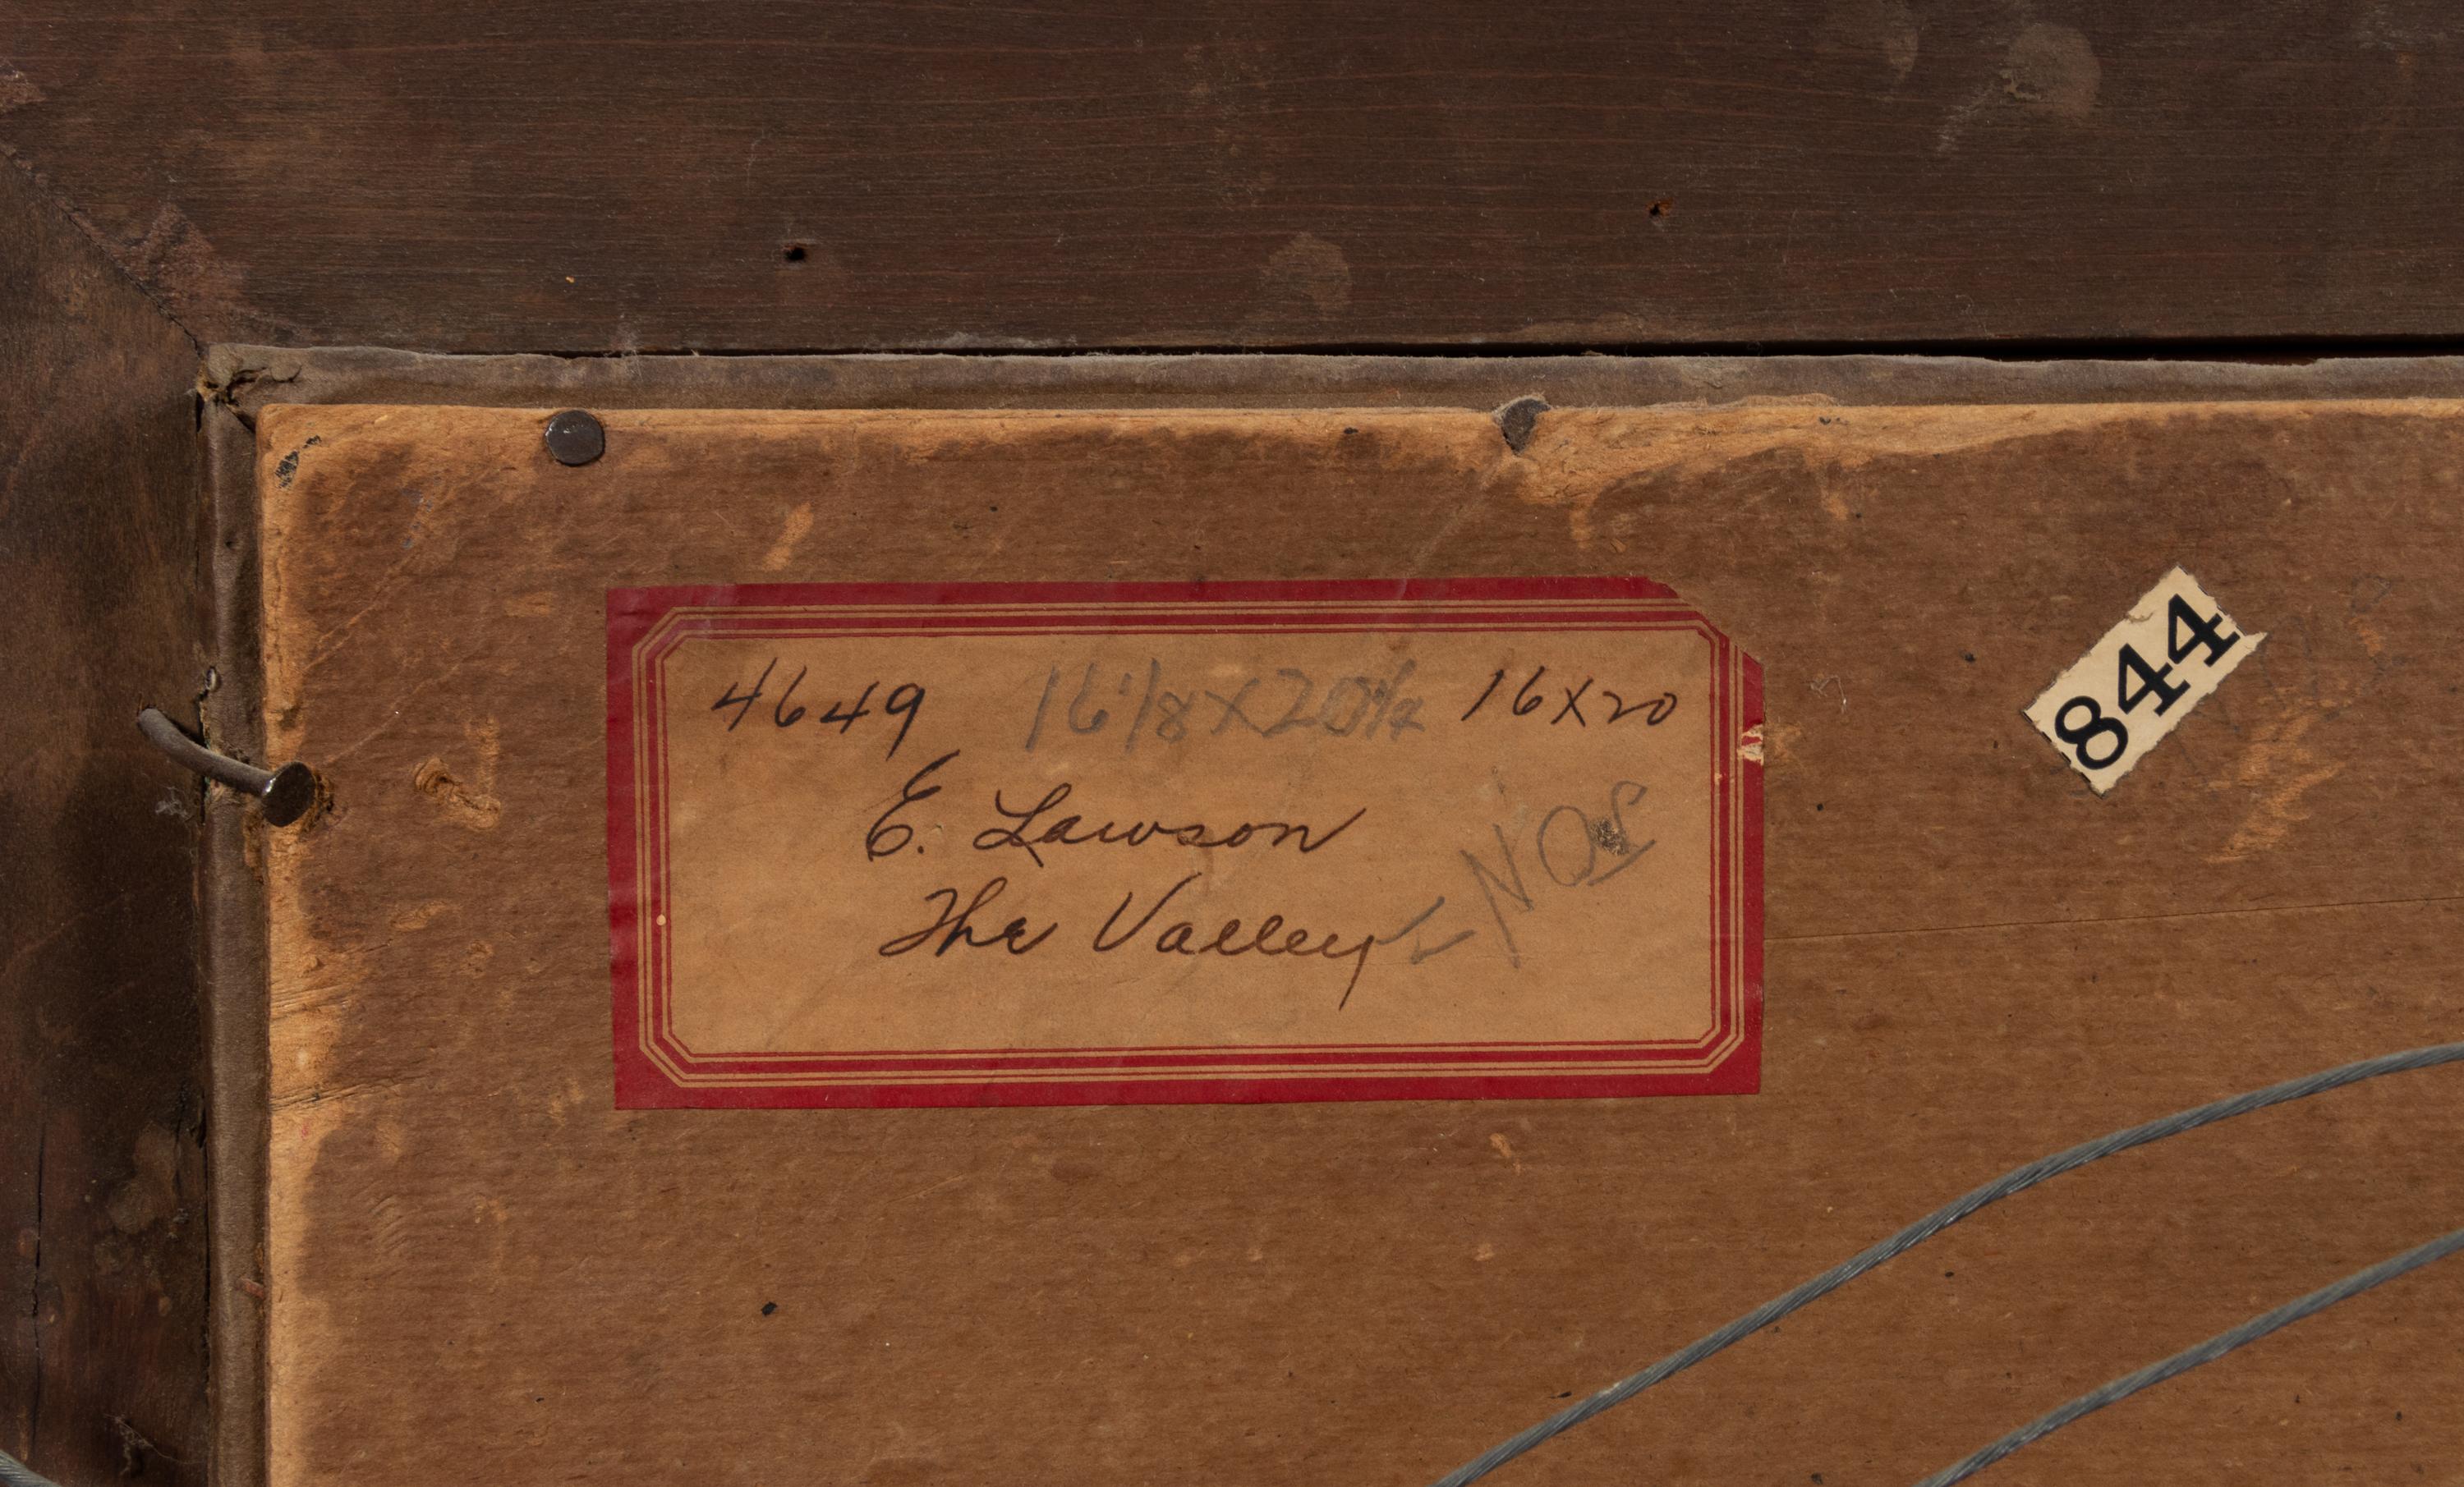 4649 16 1/8 X 20 1/2 16 X 20
E. Lawson
The Valley
844